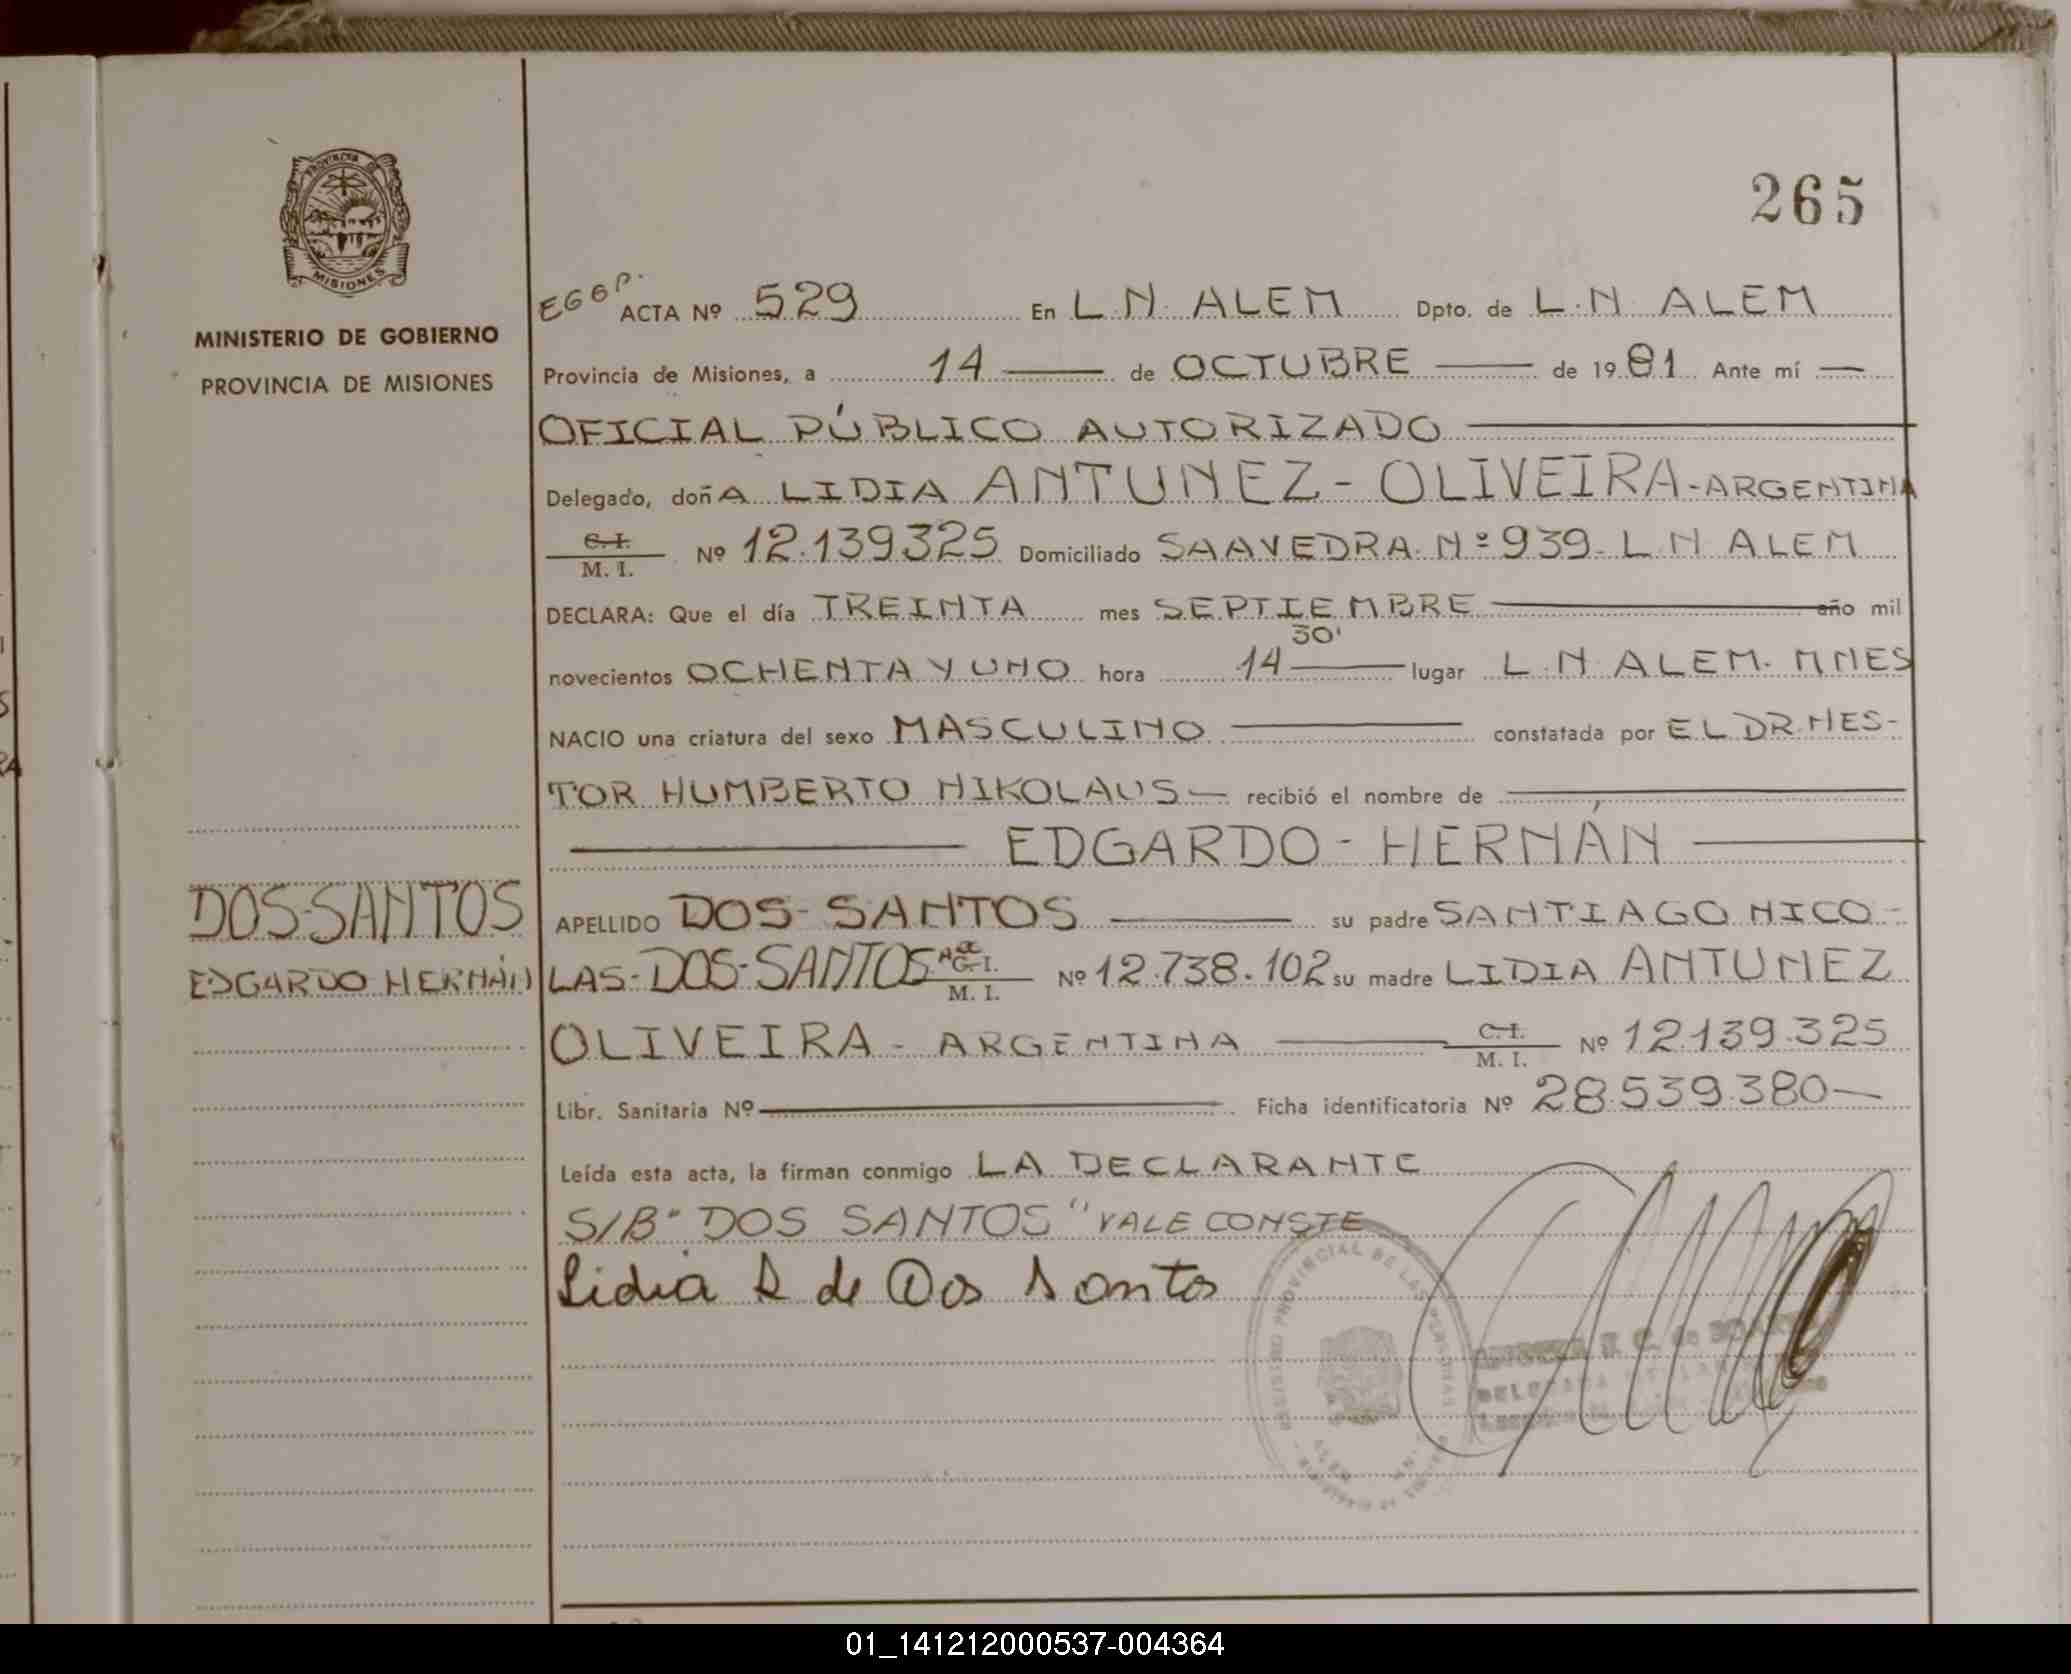 265
PROVINCIA DE
MISIONES
MINISTERIO DE GOBIERNO
PROVINCIA DE MISIONES
ACTA Nº 529 En L.N. ALEM Dpto. de L.N. ALEM
Provincia de Misiones, a 14 de OCTUBRE de 1981 Ante mí
OFICIAL PÚBLICO AUTORIZADO
Delegado, doñA LIDIA ANTUNEZ - OLIVEIRA - ARGENTINA
C.I.
M. I. Nº 12.139.325 Domiciliado SAAVEDRA Nº 939 - L.N. ALEM
DECLARA: Que el día TREINTA mes SEPTIEMBRE año mil
novecientos OCHENTA Y UNO hora 14 30' lugar L.N. ALEM. MNES
NACIO una criatura del sexo MASCULINO constatada por EL DR. NES-
TOR HUMBERTO NIKOLAUS recibió el nombre de
EDGARDO - HERNÁN
DOS-SANTOS
EDGARDO HERNÁN
APELLIDO DOS-SANTOS su padre SANTIAGO NICO-
LAS-DOS-SANTOS C.I.
M. I. Nº 12.738.102 su madre LIDIA ANTUNEZ
OLIVEIRA - ARGENTINA C.I.
M. I. Nº 12.139.325
Libr. Sanitaria Nº Ficha identificatoria Nº 28.539.380
Leída esta acta, la firman conmigo LA DECLARANTE
S/B "DOS SANTOS" VALE CONSTE
Lidia R de Dos Santos
REGISTRO PROVINCIAL DE LAS PERSONAS
01_141212000537-004364